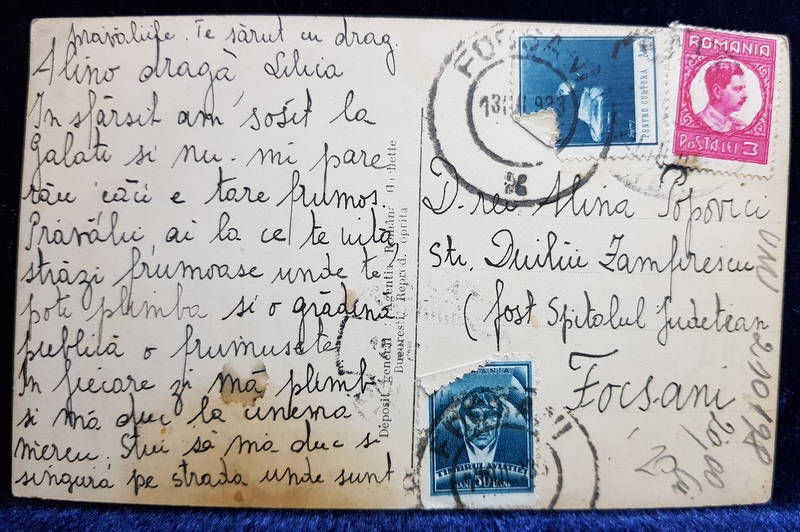 prăvăliile. Te sărut cu drag.
Alino dragă Lilica
In sfârsit am sosit la
Galati si nu-mi pare
rău căci e tare frumos.
Prăvălii, ai la ce te uita,
străzi frumoase unde te
poti plimba si o grădină
publică o frumusete.
In fiecare zi mă plimb
si mă duc la cinema
mereu. Stiu să mă duc si
singură pe strada unde sunt
Depozit general: Agentia Română Hachette
Bucuresti. Reprod. oprita
FOCSANI
13
PENTRU CULTURA
ROMANIA
POSTA LEI 3
D-rei Alina Popovici
Str. Duiliu Zamfirescu
(fost Spitalul Judetean
Focsani
ROMANIA
TIMBRUL AVIATIEI
FOCSANI
210198
20,00